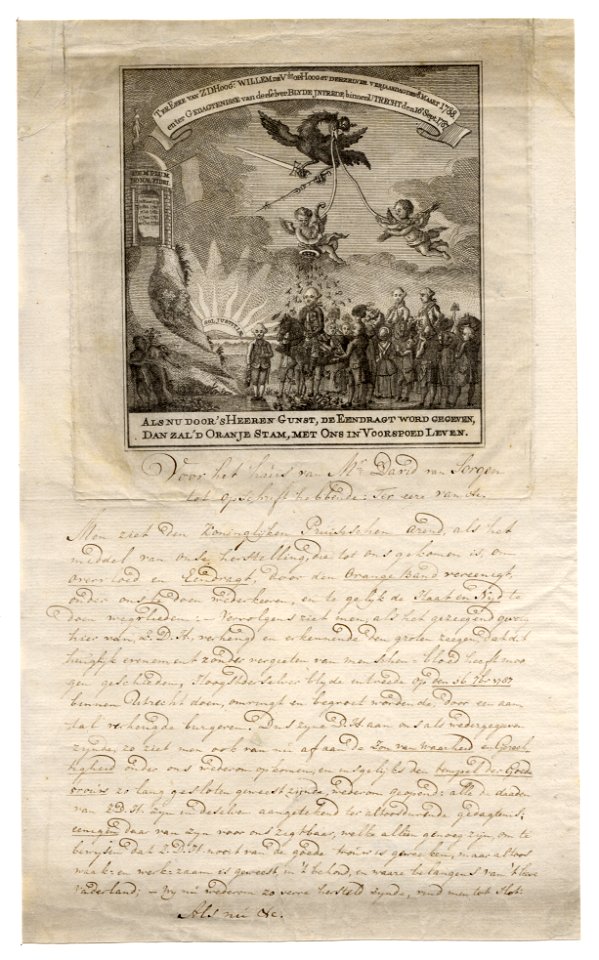 TER EERE VAN Z.D. HOOG: WILLEM DE V OP HOOGST DERZELVER VERJAARDAG DEN 8 MAART 1788
en ter GEDAGTENISSE van deszelver BLYDE INTREDE binnen UTRECHT den 16 Sept. 1787
TEMPLUM
BONAE FIDEI
SOL JUSTITIÆ
ALS NU DOOR 'S HEEREN GUNST, DE EENDRAGT WORD GEGEVEN,
DAN ZAL 'D ORANJE STAM, MET ONS IN VOORSPOED LEVEN.
Voor het huis van Mr. David van Sorgen
tot opschrift hebbende: Ter eere van &c.
Men ziet den Koninglijken Pruisischen Arend, als het
middel van onse herstelling, die tot ons gekomen is, om
overvloed en Eendragt, door den Orange Band vereenigt,
onder ons te doen wederkeeren, en te gelijk de Haat en Nijd te
doen wegvlieden: – Vervolgens ziet men, als het gezegend gevolg
hier van, Z.D.H. verheugd en erkennende den groten zeegen, dat dit
huiglijk evenement zonder vergieten van menschen-bloed heeft mo-
gen geschieden, Hoogstdeszelver blyde entreede op den 16 7br 1787
binnen Utrecht doen, omringt en begroet wordende, door een aan
tal verheugde burgeren. Dus zyne D.H. aan ons als wedergegeven
zynde, zo ziet men ook van nu af aan de Zon van waarheid en Gerech
tigheid onder ons wederom opkomen, en insgelijks den tempel der Goede
trouw, zo lang gesloten geweest zynde, wederom geopend: alle de daaden
van Z.D.H. zyn in deselven aangetekend ter altoosdurende gedagtenis;
eenigen daar van zyn voor ons zegtbaar, welke allen genoeg zyn, om te
bewysen dat Z.D.H. nooit van de goede trouw is geweeken, maar altoos
waak- en werkzaam is geweest, in 't behoud, en waare belangens van 't lieve
Vaderland; – Ny nu wederom zo verre herstelt zynde, vind men tot slot:
Als nu &c.